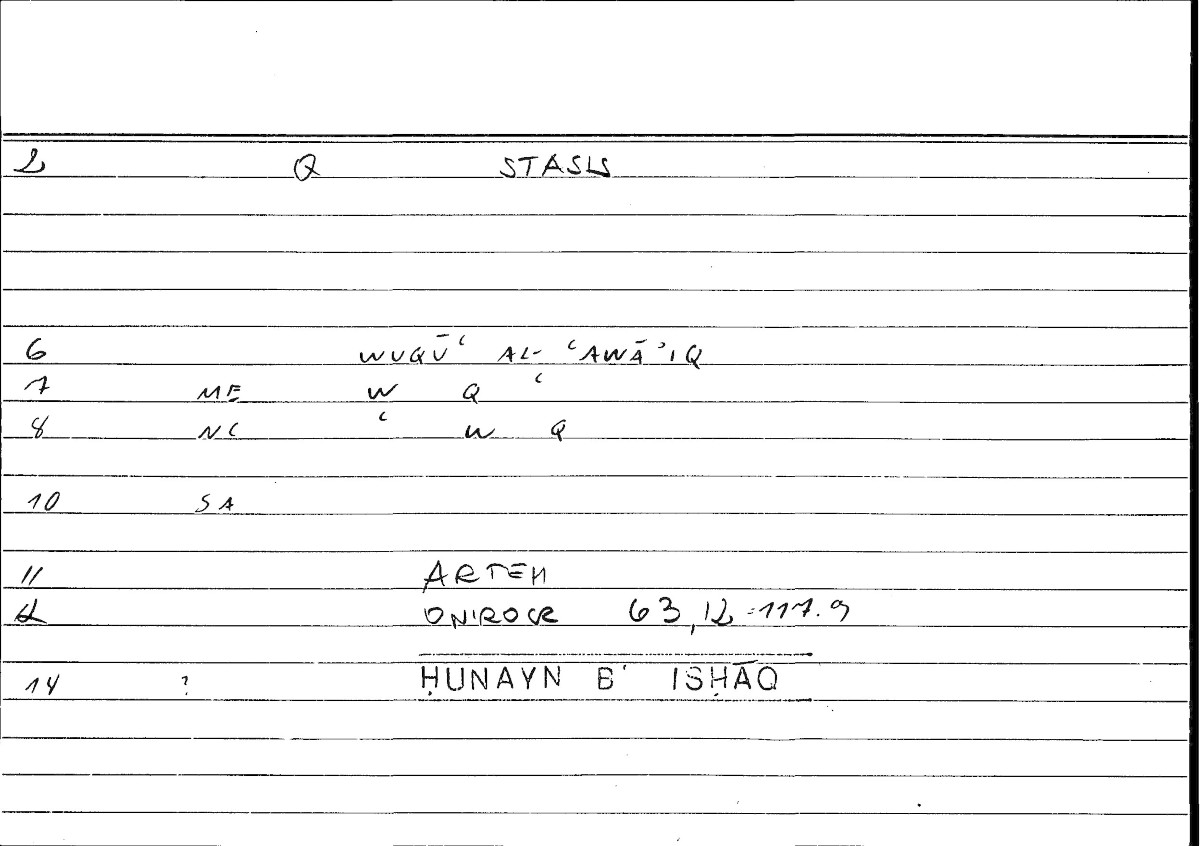 2 Q STASIS
6 WUQŪʿ AL- ʿAWĀʾIQ
7 ME W Q ʿ
8 NC ʿ W Q
10 SA
11 ARTEM
12 ONIROCR 63,12 = 117.9
14 ? ḤUNAYN B' ISḤĀQ